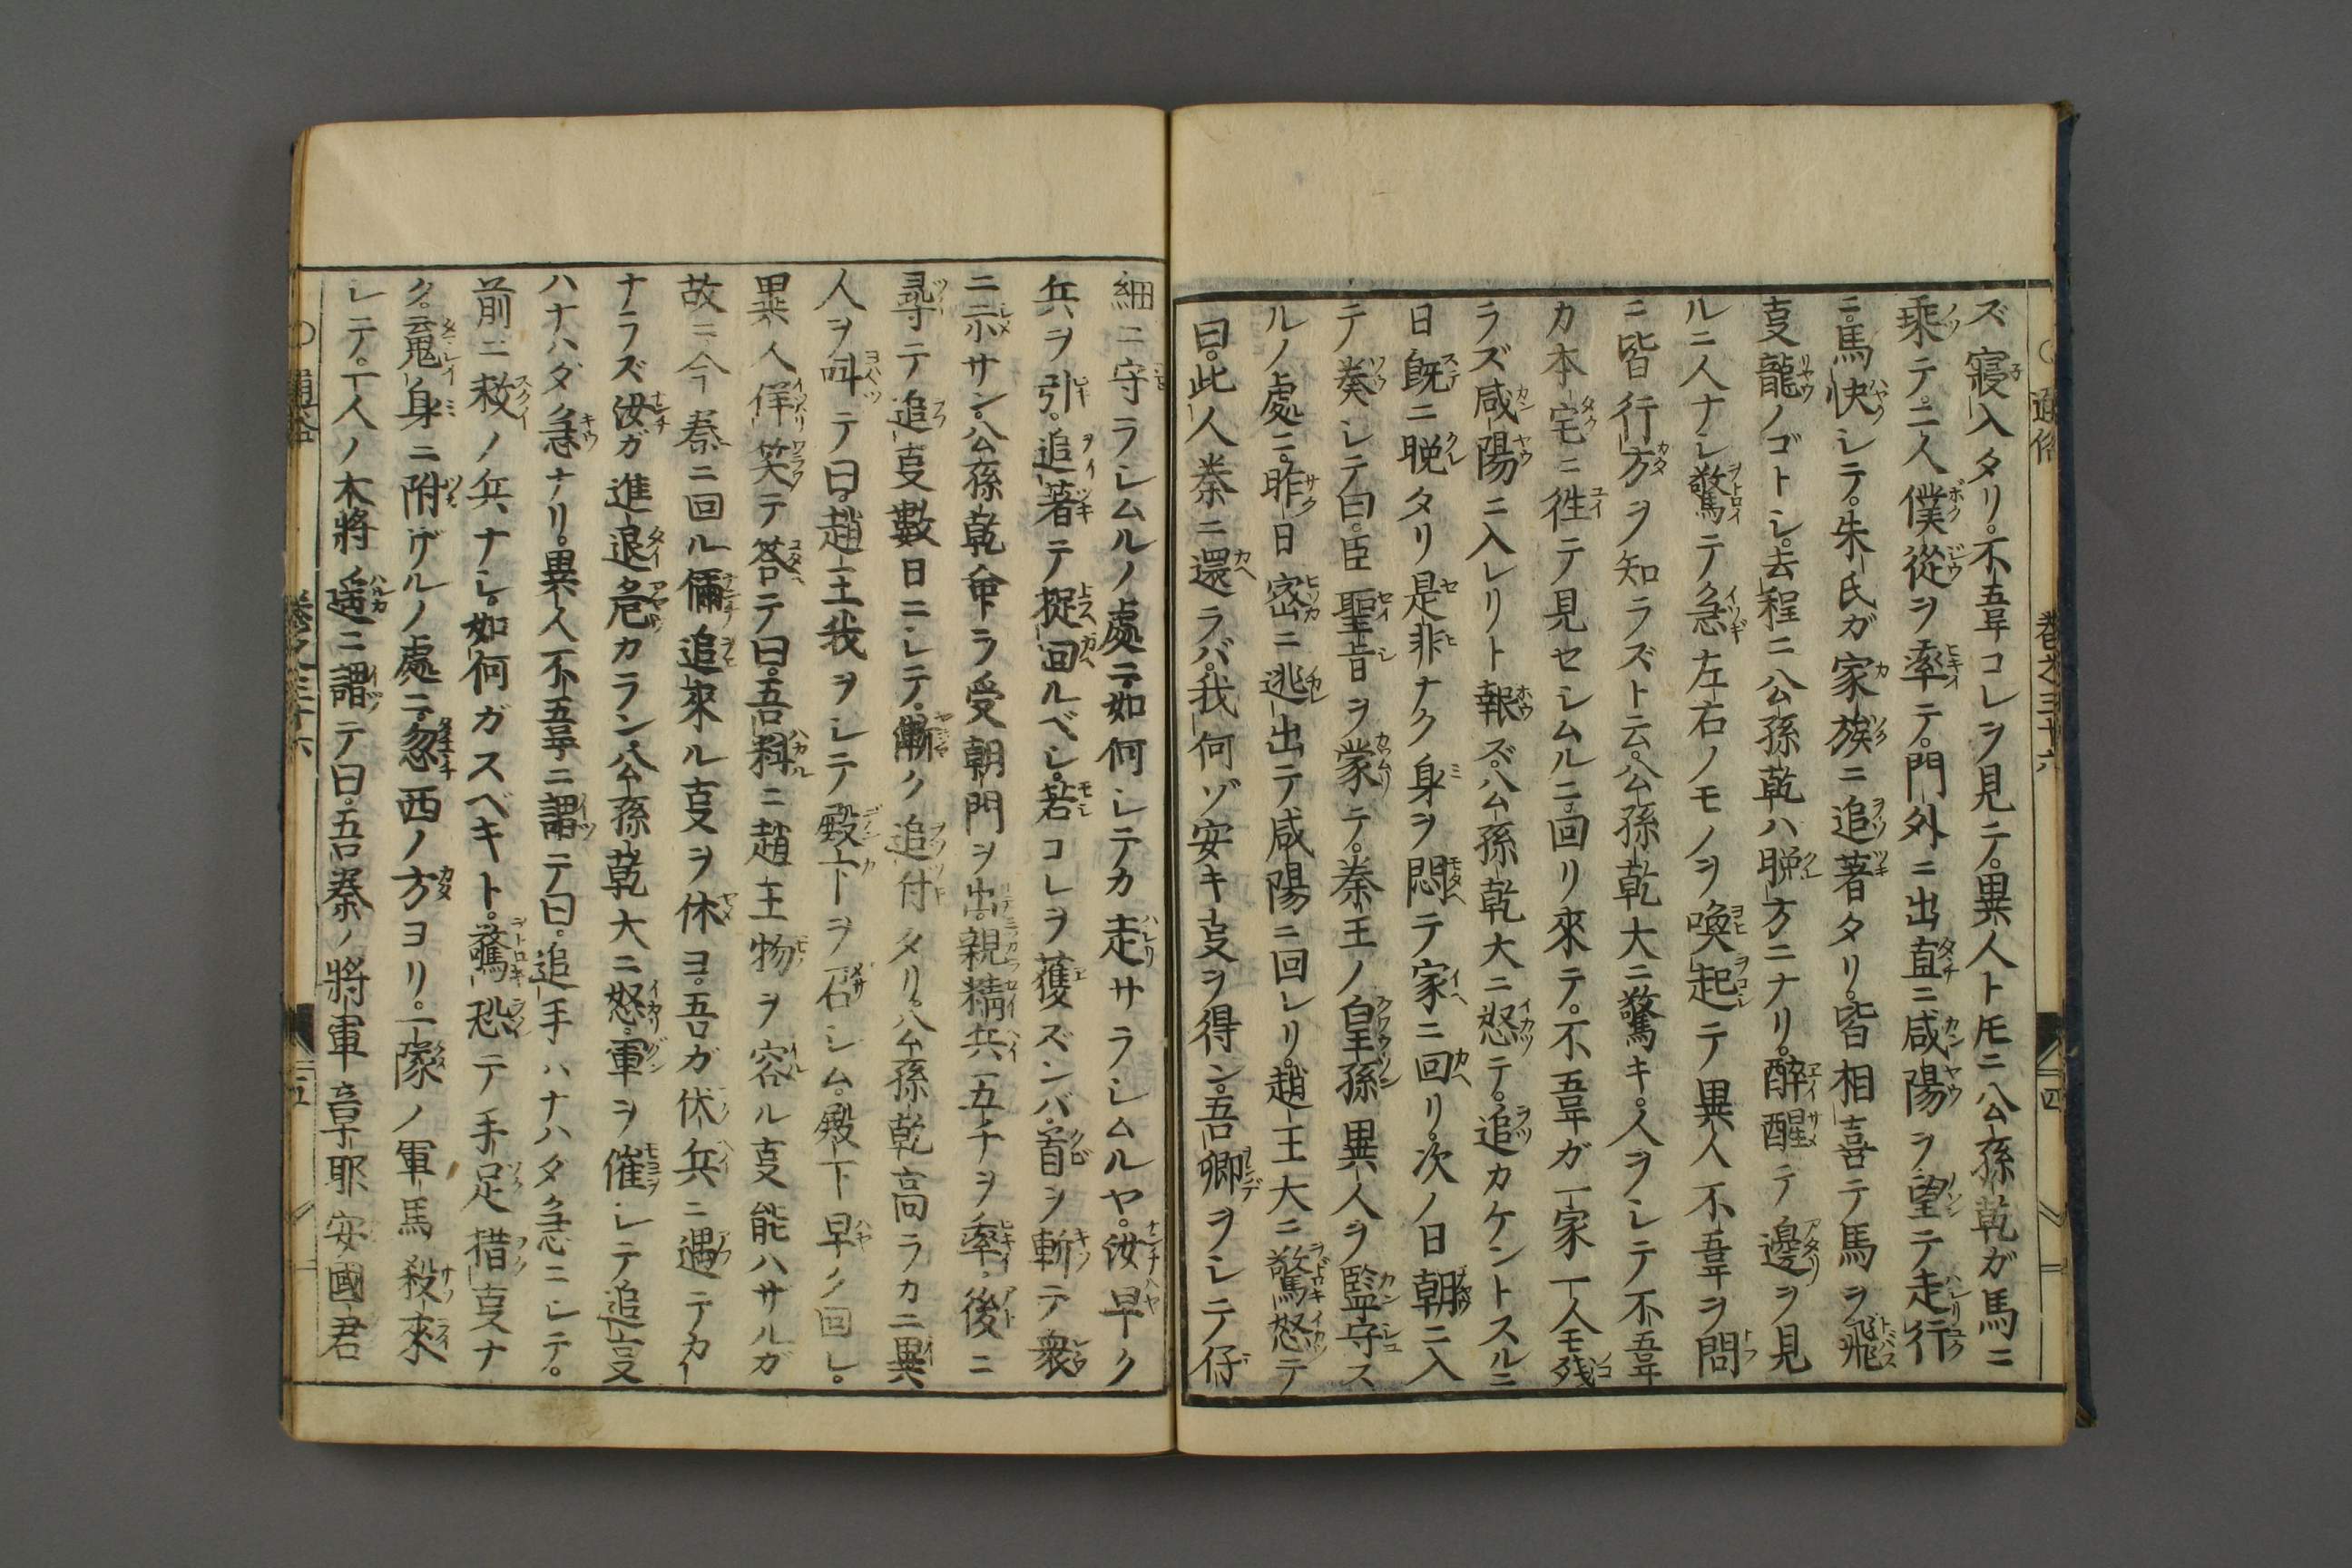 ズ寝入タリ。不韋コレヲ見テ。異人トモニ公孫乾ガ馬ニ
乗テ。二人僕從ヲ率テ。門外ニ出直ニ咸陽ヲ望テ走行
ニ。馬快シテ。朱氏ガ家族ニ追著タリ。皆相喜テ馬ヲ飛
事龍ノゴトシ。去程ニ公孫乾ハ晩方ニナリ。醉醒テ邊ヲ見
ルニ人ナシ驚テ急左右ノモノヲ喚起テ異人不韋ヲ問
ニ皆行方ヲ知ラズト云。公孫乾大ニ驚キ。人ヲシテ不韋
カ本宅ニ徃テ見セシムルニ。回リ來テ。不韋ガ一家一人モ残
ラズ咸陽ニ入レリト報ズ。公孫乾大ニ怒テ。追カケントスルニ
日既ニ晩タリ是非ナク身ヲ悶テ家ニ回リ。次ノ日朝ニ入
テ奏シテ曰。臣聖旨ヲ蒙テ。秦王ノ皇孫異人ヲ監守ス
ルノ處ニ。昨日密ニ逃出テ咸陽ニ回レリ。趙王大ニ驚怒テ
曰。此人秦ニ還ラバ。我何ゾ安キ事ヲ得ン。吾卿ヲシテ仔
細ニ守ラシムルノ處ニ如何シテカ走サラシムルヤ。汝早ク
兵ヲ引。追著テ捉回ルベシ。若コレヲ獲ズンバ。首ヲ斬テ衆
ニ示サン。公孫乾命ヲ受朝門ヲ出。親精兵一五千ヲ率。後ニ
尋テ追事數日ニシテ。漸ク追付タリ。公孫乾高ラカニ異
人ヲ叫テ曰。趙王我ヲシテ殿下ヲ召シム。殿下早ク回レ。
異人佯笑テ答テ曰。吾料ニ趙王物ヲ容ル事能ハサルガ
故ニ今秦ニ回ル儞追來ル事ヲ休ヨ。吾ガ伏兵ニ遇テカ
ナラズ汝ガ進退危カラン公孫乾大ニ怒。軍ヲ催シテ追事
ハナハダ急ナリ。異人不韋ニ謂テ曰。追手ハナハタ急ニシテ。
前ニ救ノ兵ナシ。如何ガスベキト。驚恐テ手足措事ナ
ク。䰟身ニ附ザルノ處ニ。忽西ノ方ヨリ。一隊ノ軍馬殺來
レテ。一人ノ大將遥ニ謂テ曰。吾秦ノ將軍章耶安國君
通俗
巻之三十六
四
巻之三十六
五